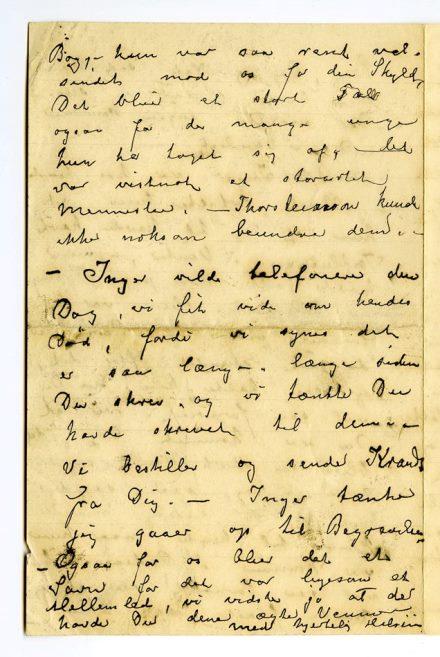 Bog, – hun var saa rasat vel-
sindet mod os for din Skyld,
Det bliver et stort Tab
ogsaa for de mange unge
hun har taget sig af, – det
var vistnok et storartet
Menneske. – Thorsteinsson kunde
ikke noksom beundre dem. –
– Inger vilde telefonere den
Dag, vi fik vide om hendes
Død, fordi vi synes det
er saa længe, længe siden
Du skrev, og vi tænkte Du
havde skrevet til dem. –
Vi bestiller og sender Krands
fra Dig. – Inger tænker
jeg gaaer op til Begravelsen
– Ogsaa for os blir det et
Savn for det var ligesom et
Mellemled, vi vidste jo at der
havde Du dine ægte Venner
med hjertelig Hilsen